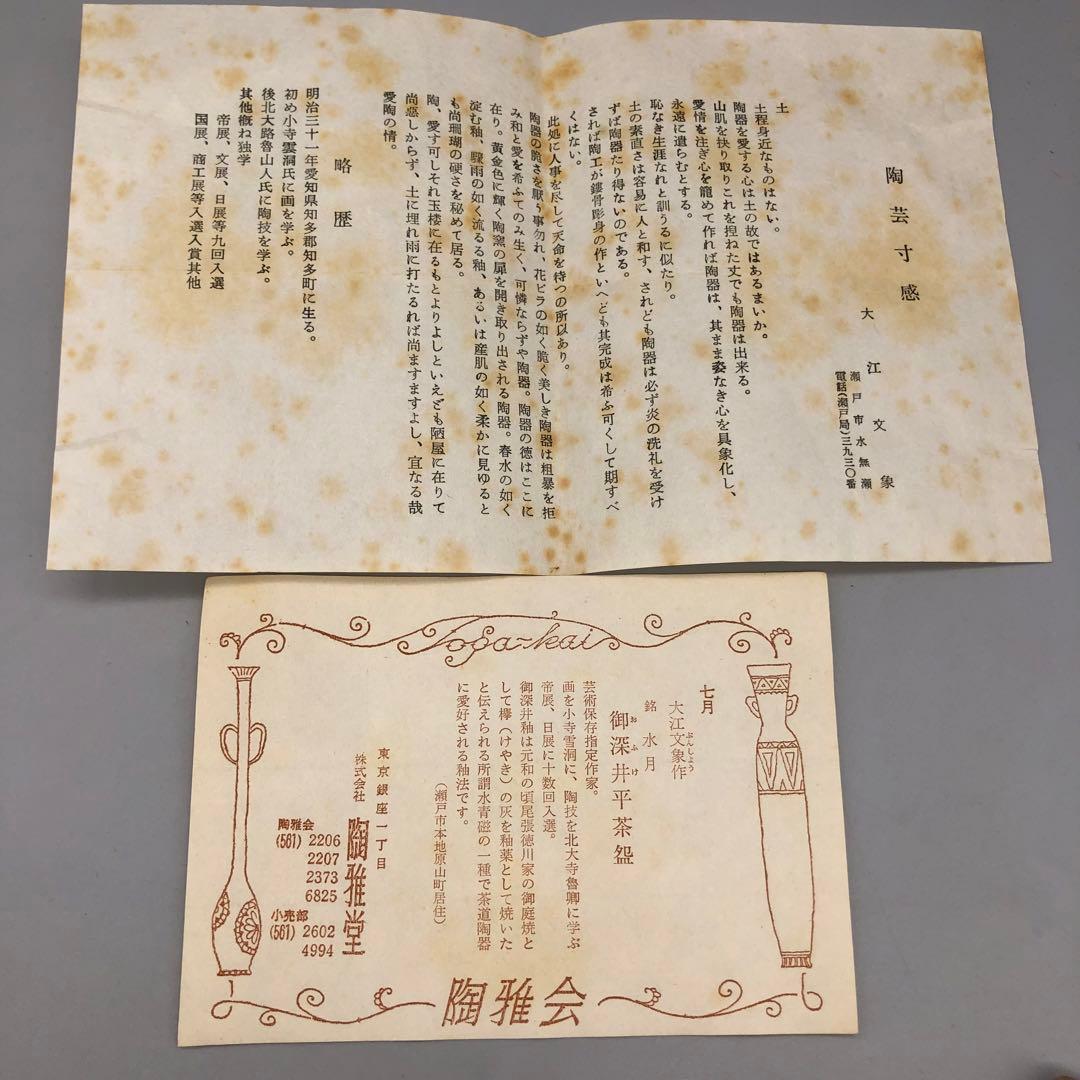 陶芸寸感
大江文象
瀬戸市水無瀬
電話(瀬戸局)三九三〇番
土
土程身近なものはない。
陶器を愛する心は土の故ではあるまいか。
山肌を抉り取りこれを捏ねた丈でも陶器は出来る。
愛情を注ぎ心を籠めて作れば陶器は、其まま姿なき心を具象化し、
永遠に遺らむとする。
恥なき生涯なれと訓うるに似たり。
土の素直さは容易に人と和す、されども陶器は必ず炎の洗礼を受け
ずば陶器たり得ないのである。
されば陶工が鏤骨彫身の作といへども其完成は希ふ可くして期すべ
くはない。
此処に人事を尽して天命を待つの所以あり。
陶器の脆さを厭う事勿れ、花ビラの如く脆く美しき陶器は粗暴を拒
み和と愛を希ふてのみ生く、可憐ならずや陶器。陶器の徳はここに
在り。黄金色に輝く陶窯の扉を開き取り出される陶器。春水の如く
淀む釉、驟雨の如く流るる釉、あるいは産肌の如く柔かに見ゆると
も尚珊瑚の硬さを秘めて居る。
陶、愛す可しそれ玉楼に在るもとよりよしといえども陋屋に在りて
尚悪しからず、土に埋れ雨に打たるれば尚ますますよし、宜なる哉
愛陶の情。
略歴
明治三十一年愛知県知多郡知多町に生る。
初め小寺雲洞氏に画を学ぶ。
後北大路魯山人氏に陶技を学ぶ。
其他概ね独学
帝展、文展、日展等九回入選
国展、商工展等入選入賞其他
Toga-kai
七月
大江文象作
ぶんしょう
銘 水月
御深井平茶盌
おふけ
芸術保存指定作家。
画を小寺雪洞に、陶技を北大寺魯卿に学ぶ
帝展、日展に十数回入選。
御深井釉は元和の頃尾張徳川家の御庭焼と
して欅(けやき)の灰を釉薬として焼いた
と伝えられる所謂水青磁の一種で茶道陶器
に愛好される釉法です。
(瀬戸市本地原山町居住)
東京銀座一丁目
株式会社 陶雅堂
陶雅会
(561) 2206
2207
2373
6825
小売部
(561) 2602
4994
陶雅会